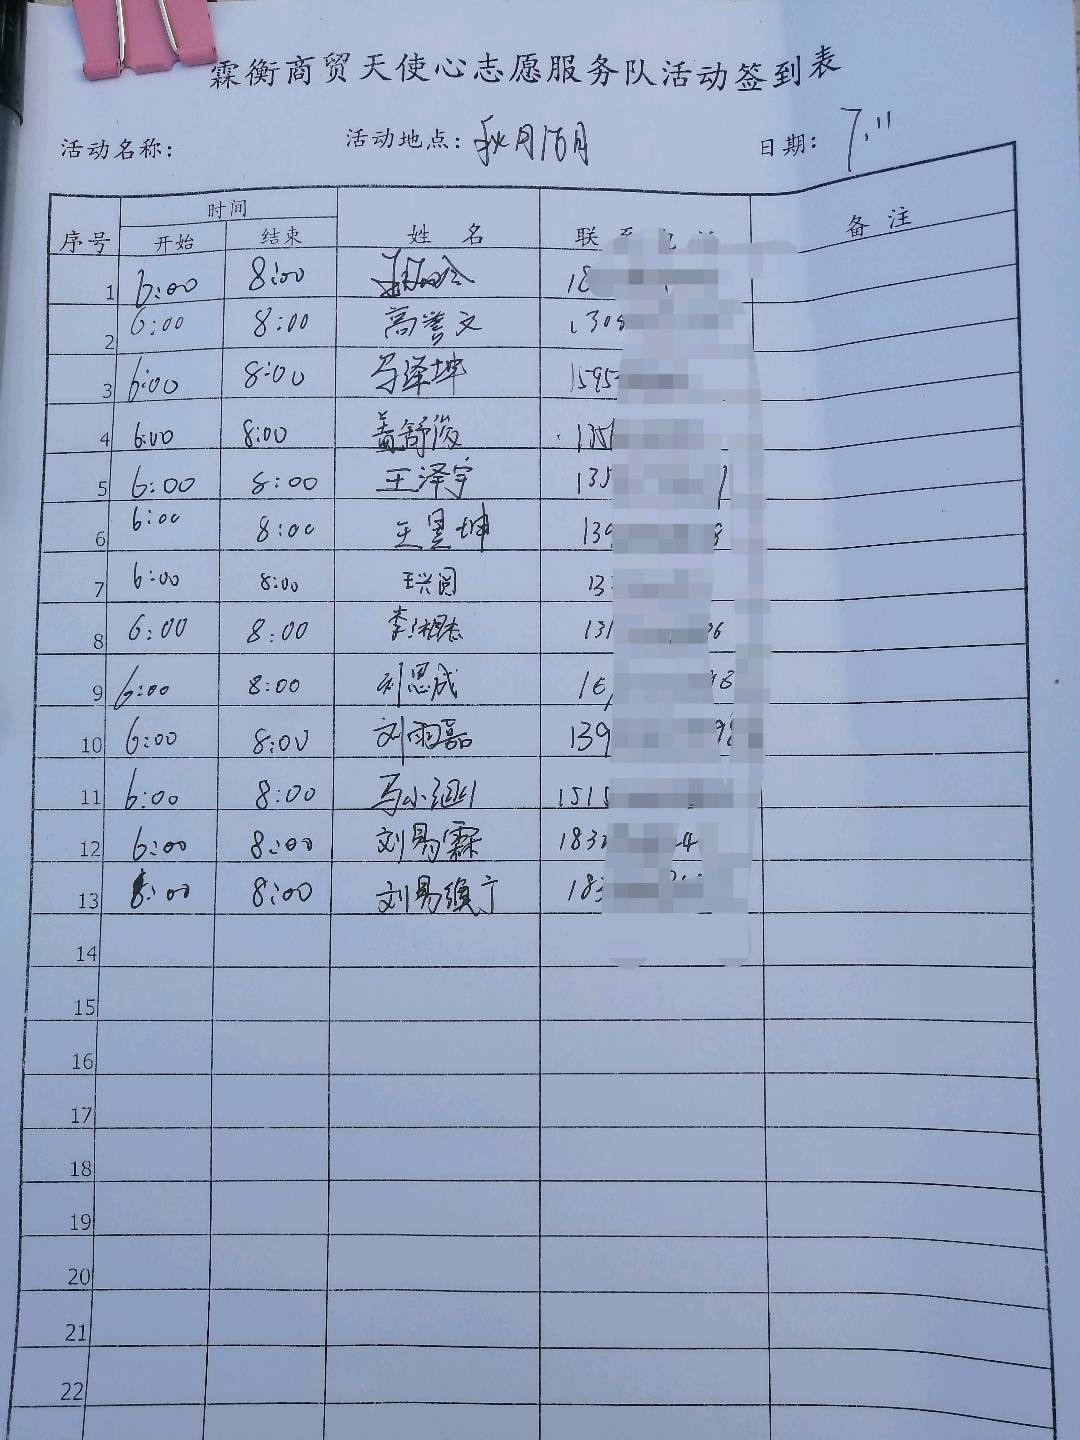 霖衡商贸天使心志愿服务队活动签到表
活动名称： 活动地点：秋月16月 日期：7.11
序号 时间 姓名 联系电话 备注
开始 结束
1 6:00 8:00 18
2 6:00 8:00 高誉文 1308
3 6:00 8:00 马泽坤 1595
4 6:00 8:00 黄舒俊 1351
5 6:00 8:00 王泽宇 135
6 6:00 8:00 王昱坤 139 8
7 6:00 8:00 王兴阅 13
8 6:00 8:00 李湘 131 36
9 6:00 8:00 刘思成 98
10 6:00 8:00 刘雨嘉 139 98
11 6:00 8:00 马小涵 1515
12 6:00 8:00 刘易霖 183 4
13 8:00 8:00 刘易 183
14
15
16
17
18
19
20
21
22